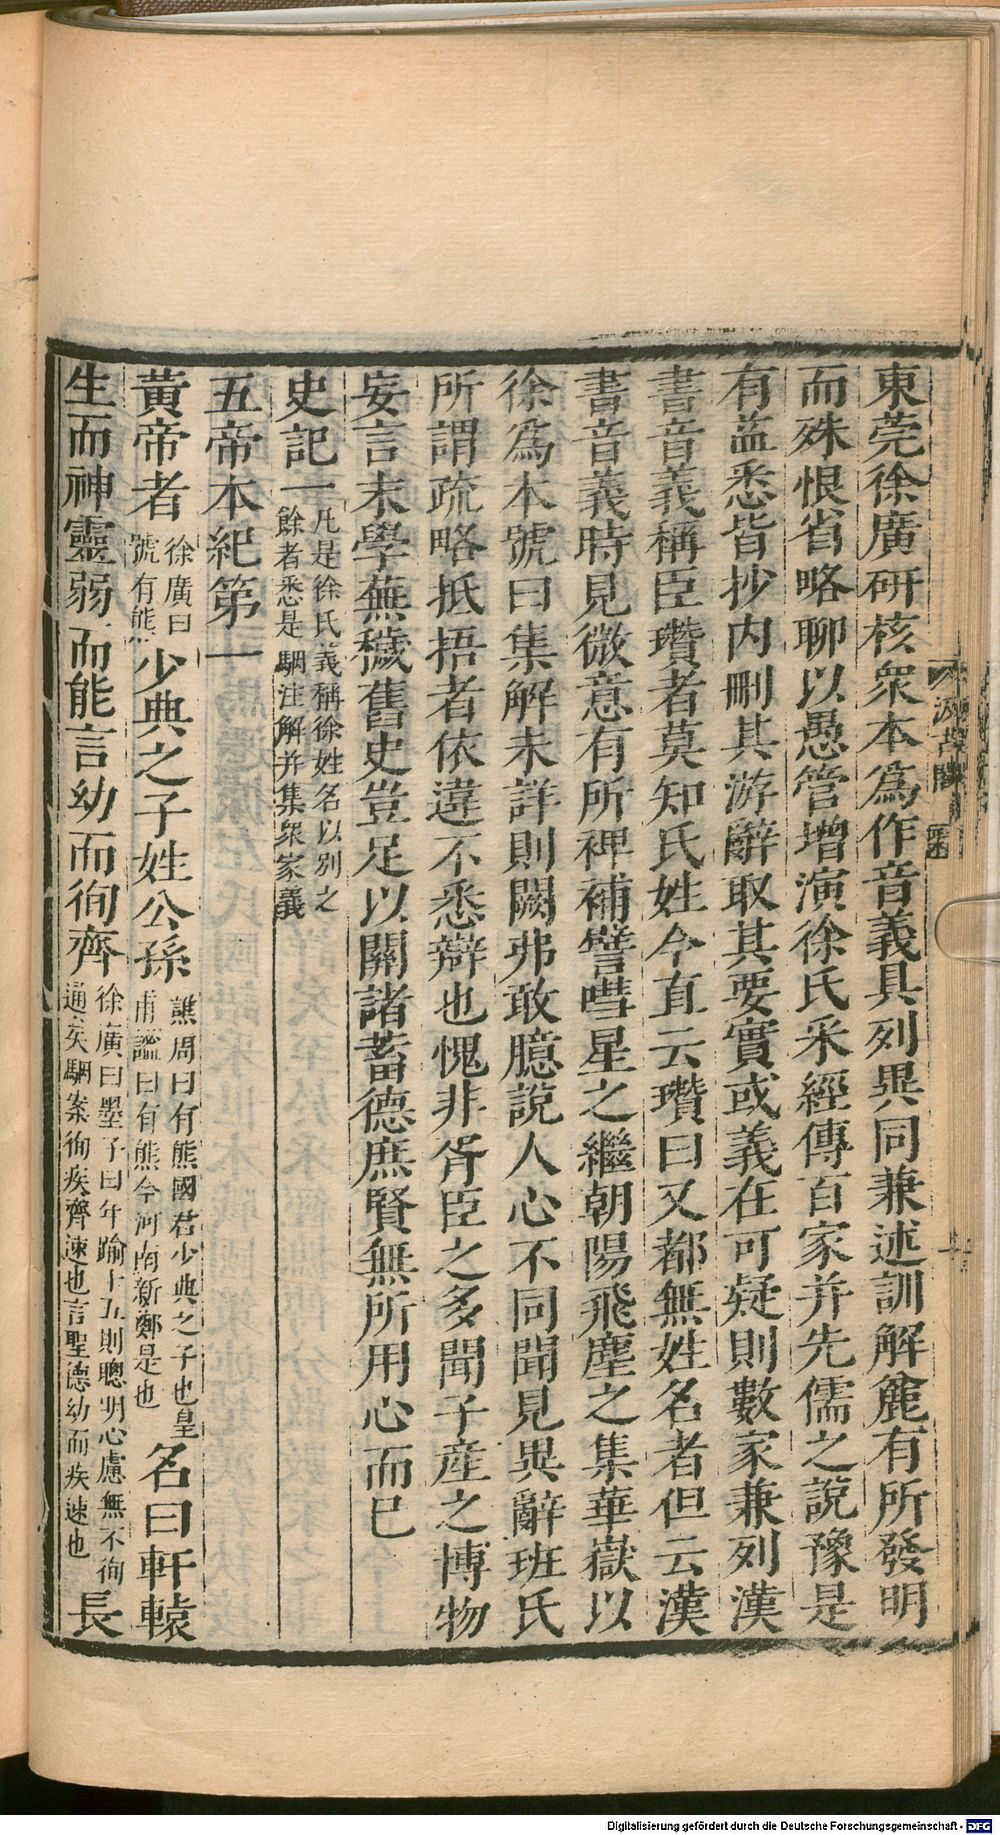 東莞徐廣研核衆本為作音義具列異同兼述訓解麄有所發明
而殊恨省略聊以愚管增演徐氏采經傳百家并先儒之說豫是
有益悉皆抄内刪其游辭取其要實或義在可疑則數家兼列漢
書音義稱臣瓚者莫知氏姓今直云瓚曰又都無姓名者但云漢
書音義時見微意有所裨補譬嘒星之繼朝陽飛塵之集華嶽以
徐為本號曰集解未詳則闕弗敢臆說人心不同聞見異辭班氏
所謂疏略抵捂者依違不悉辯也愧非胥臣之多聞子産之博物
妄言末學蕪穢舊史豈足以關諸畜德庶賢無所用心而已
史記一凡是徐氏義稱徐姓名以别之餘者悉是駰注解并集衆家義
五帝本紀第一
黃帝者徐廣曰號有熊少典之子姓公孫譙周曰有熊國君少典之子也皇甫謐曰有熊今河南新鄭是也名曰軒轅
生而神靈弱而能言幼而徇齊徐廣曰墨子曰年踰十五則聰明心慮無不徇通矣駰案徇疾齊速也言聖德幼而疾速也長
汲古閣
Digitalisierung gefördert durch die Deutsche Forschungsgemeinschaft - DFG